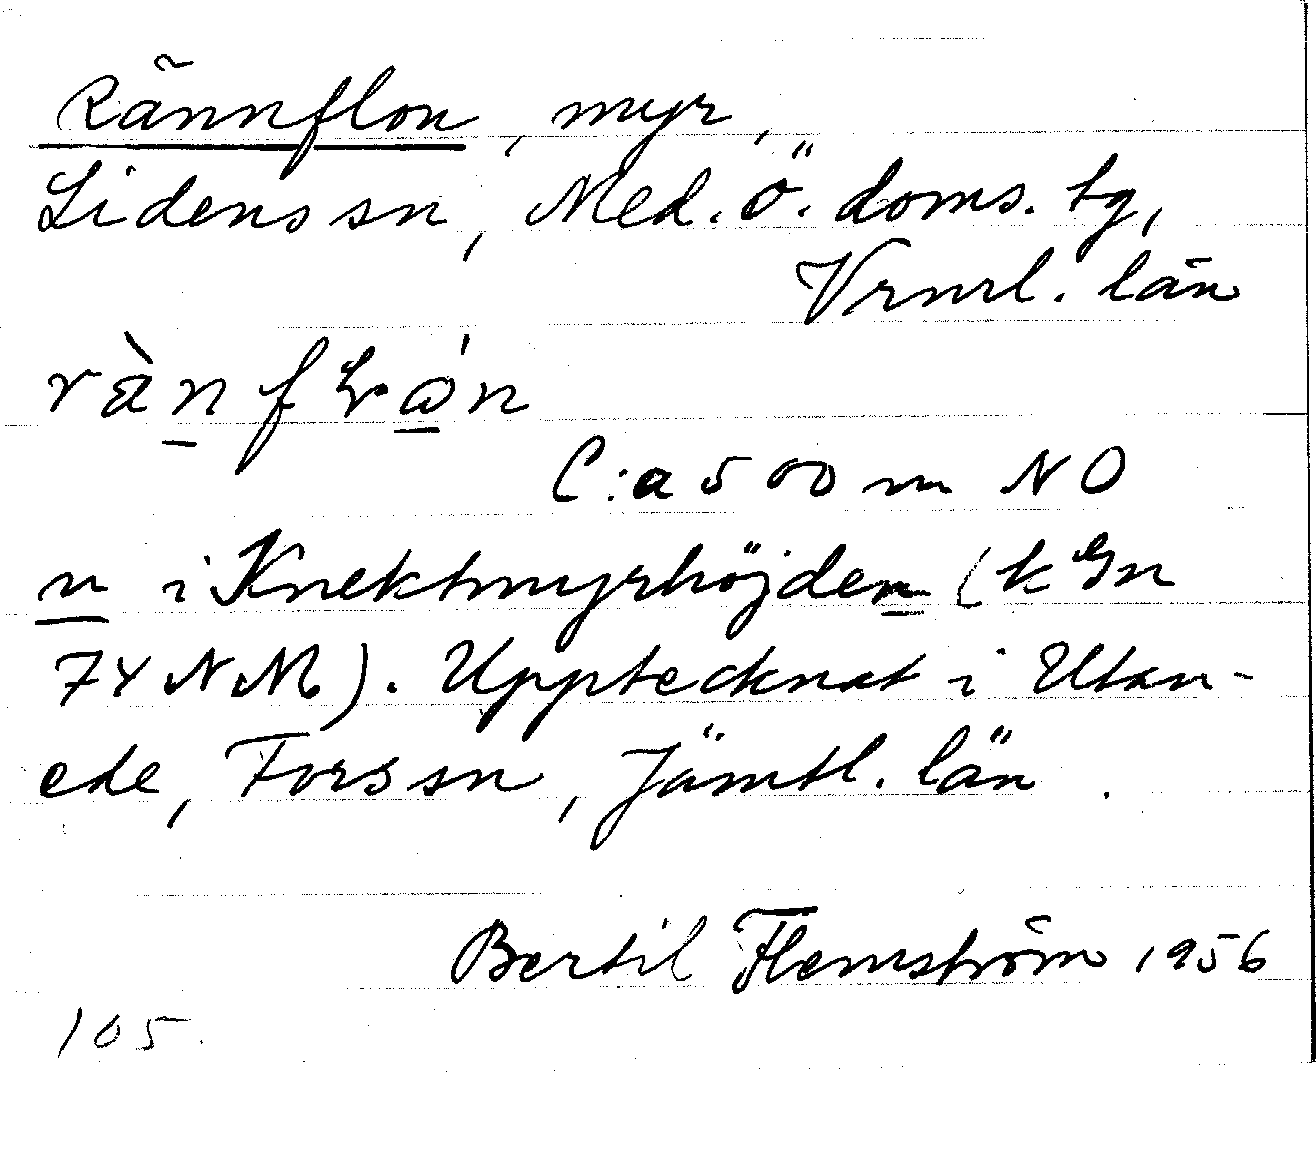 Rännflon, myr,
Lidens sn, Med. ö. doms. tg,
Vrnrl. län
C:a 500 m NO
n i Knektmyrhöjden (k Gn
74 NM). Upptecknat i Utan-
ede, Fors sn, Jämtl. län.
Bertil Flemström 1956
105.